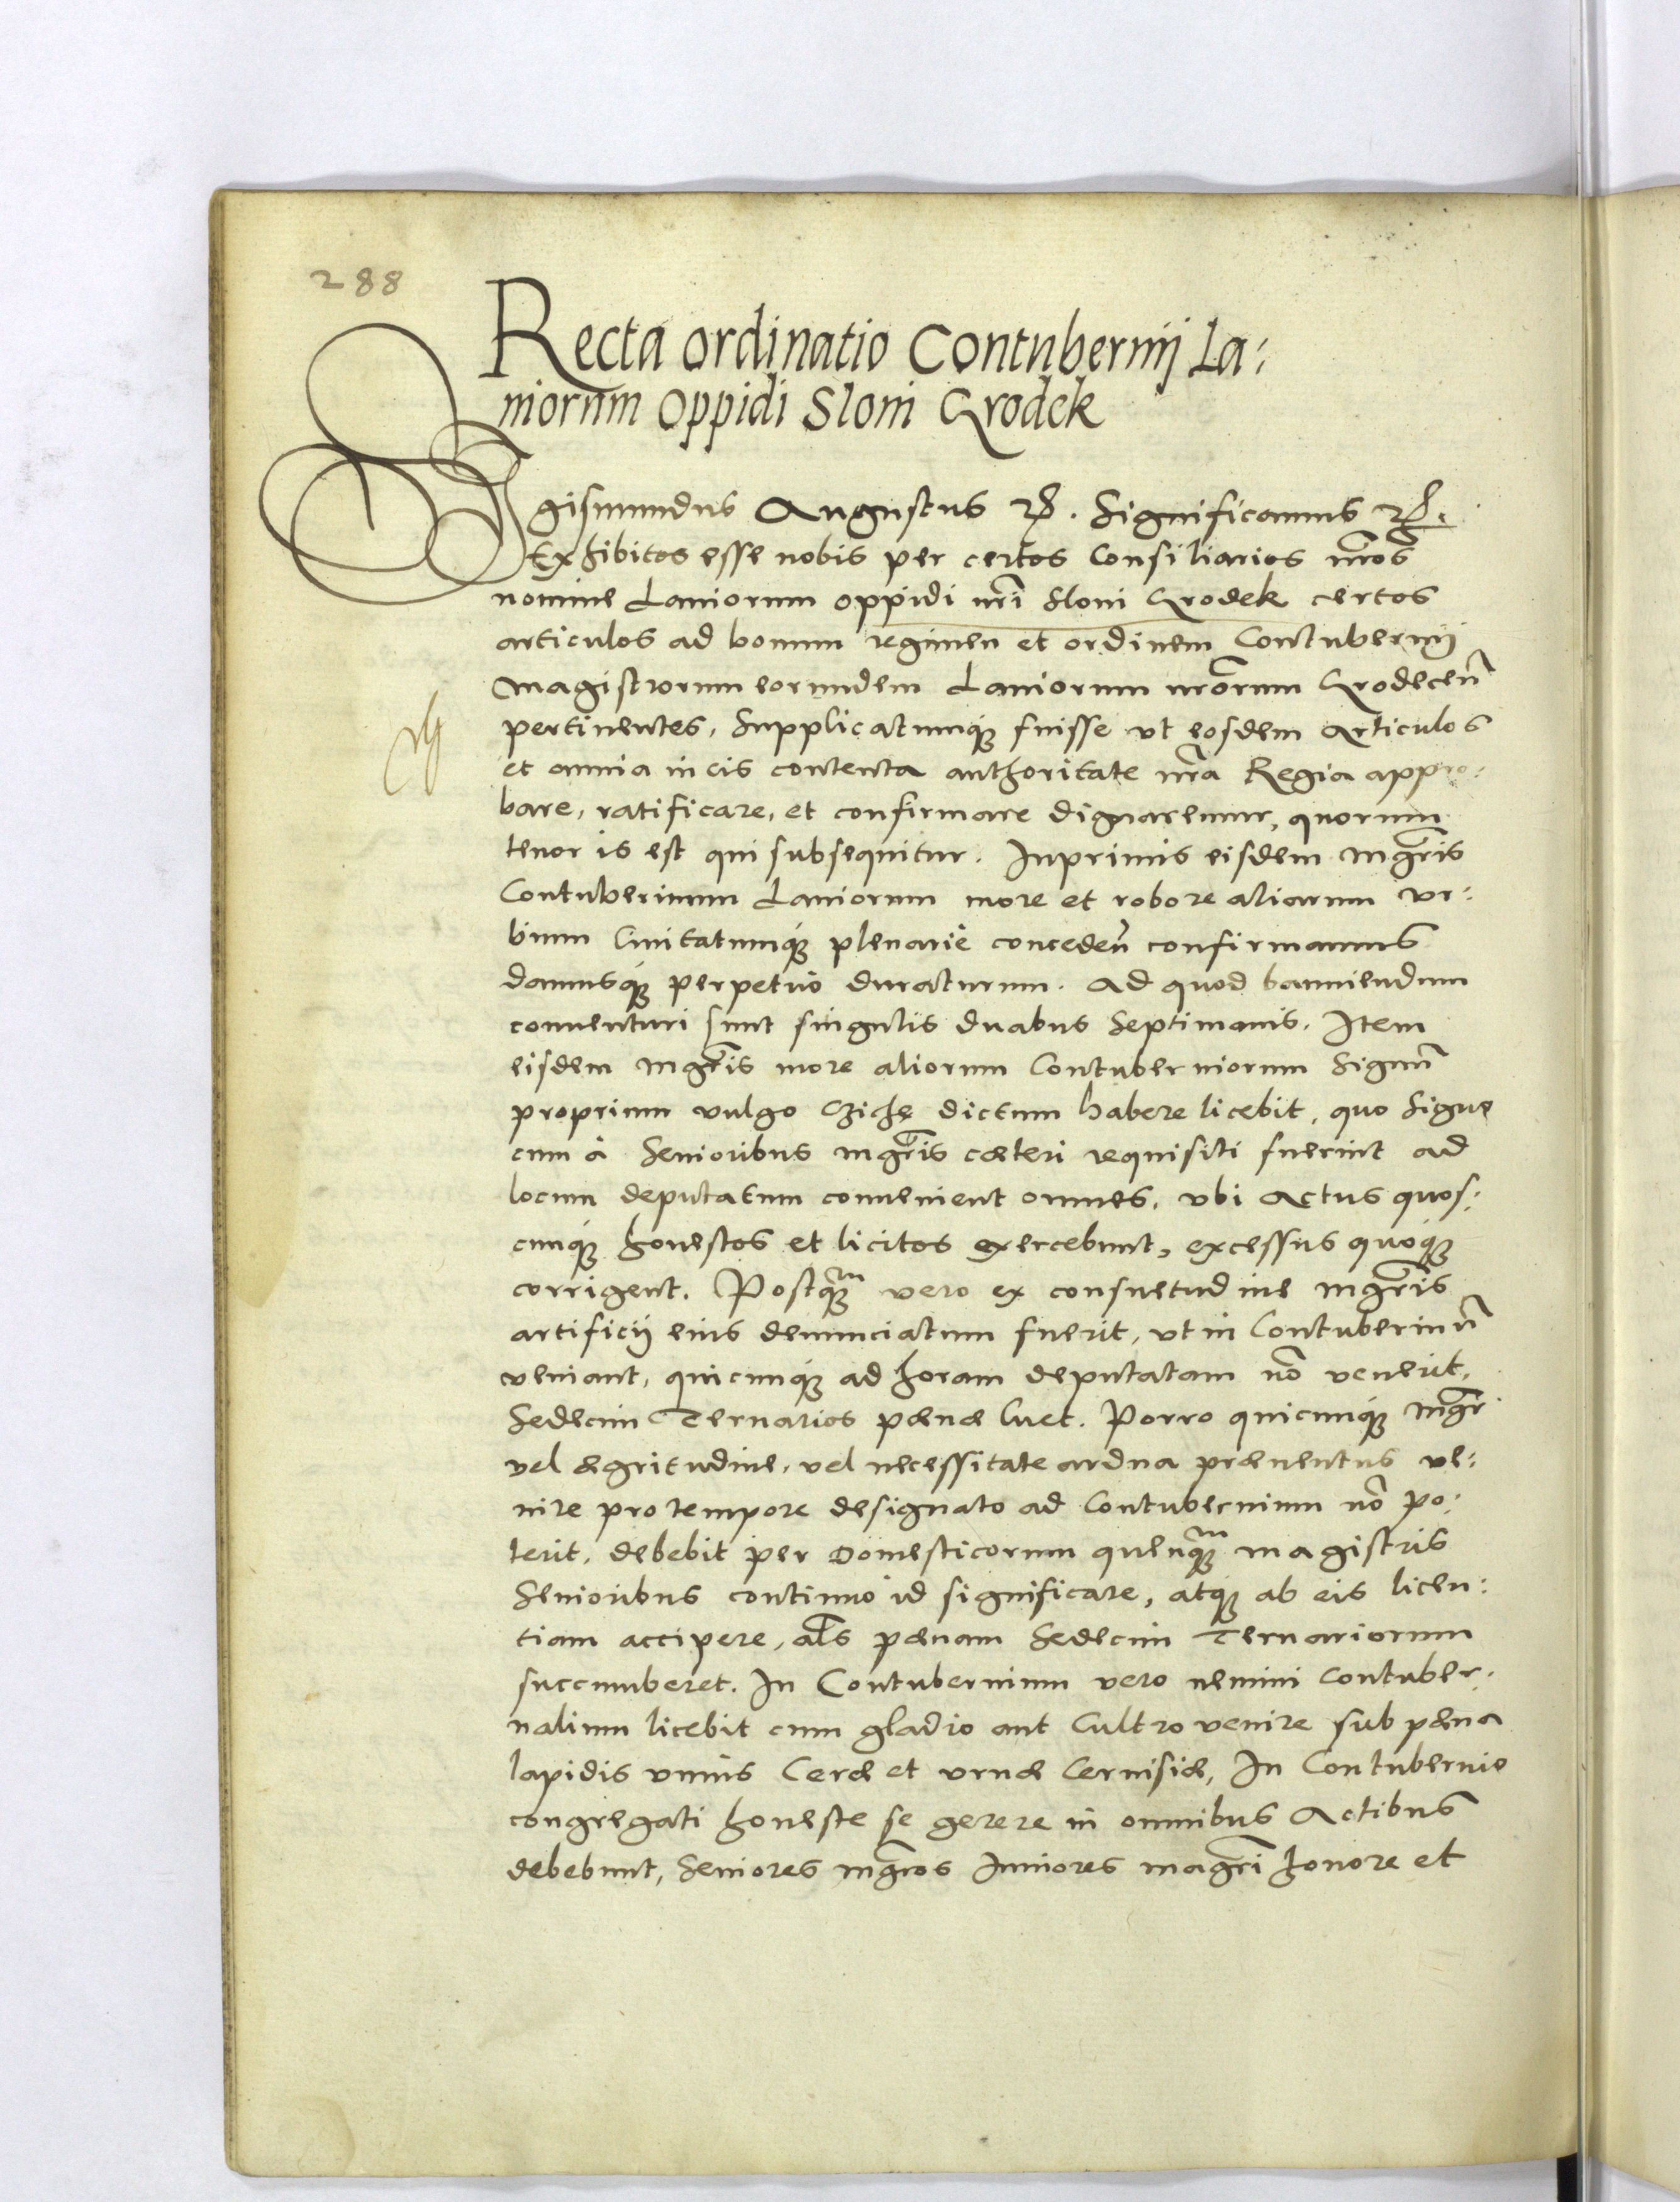 288
Recta ordinatio Contubernij La:
niorum oppidi Sloni Grodek
Sigismundus Augustus etc. Significamus etc.
Exhibitos esse nobis per certos Consiliarios nros
nomine Laniorum oppidi nri Sloni Grodek certos
articulos ad bonum regimen et ordinem Contubernij
magistrorum eorundem Laniorum nrorum Grodecen
pertinentes, Supplicatumque fuisse vt eosdem Articulos
et omnia in eis contenta authoritate nra Regia appro:
bare, ratificare, et confirmare dignaremur, quorum
tenor is est qui subsequitur. Inprimis eisdem mgris
Contubernium Laniorum more et robore aliarum vr:
bium Ciuitatumque plenariè conceden confirmamus
damusque perpetuò duraturum. Ad quod banniendum
conuenturi sunt singulis duabus Septimanis. Item
eisdem mgris more aliorum Contuberniorum Signum
proprium vulgo Cziche dictum habere licebit, quo Signo
cum à Senioribus mgris cæteri requisiti fuerint ad
locum deputatum conuenient omnes, vbi Actus quos:
cunque honestos et licitos exercebunt, excessus quoque
corrigent. Postquam vero ex consuetudine mgris
artificij eius denunciatum fuerit, vt in Contubernium
veniant, quicunque ad horam deputatam no venerit,
Sedecim Ternarios pænæ luet. Porro quicunque mgr
vel ægritudine, vel necessitate ardua præuentus ve:
nire pro tempore designato ad Contubernium no po:
terit, debebit per Domesticorum quenquam magistris
Senioribus continuò id significare, atque ab eis licen:
tiam accipere, als pænam Sedecim Ternariorum
succumberet. In Contubernium vero nemini Contuber:
nalium licebit cum gladio aut Cultro venire sub pæna
lapidis vnius Ceræ et vrnæ Ceruisiæ, In Contubernio
congregati honeste se gerere in omnibus Actibus
debebunt, Seniores mgros Iuniores magri honore et